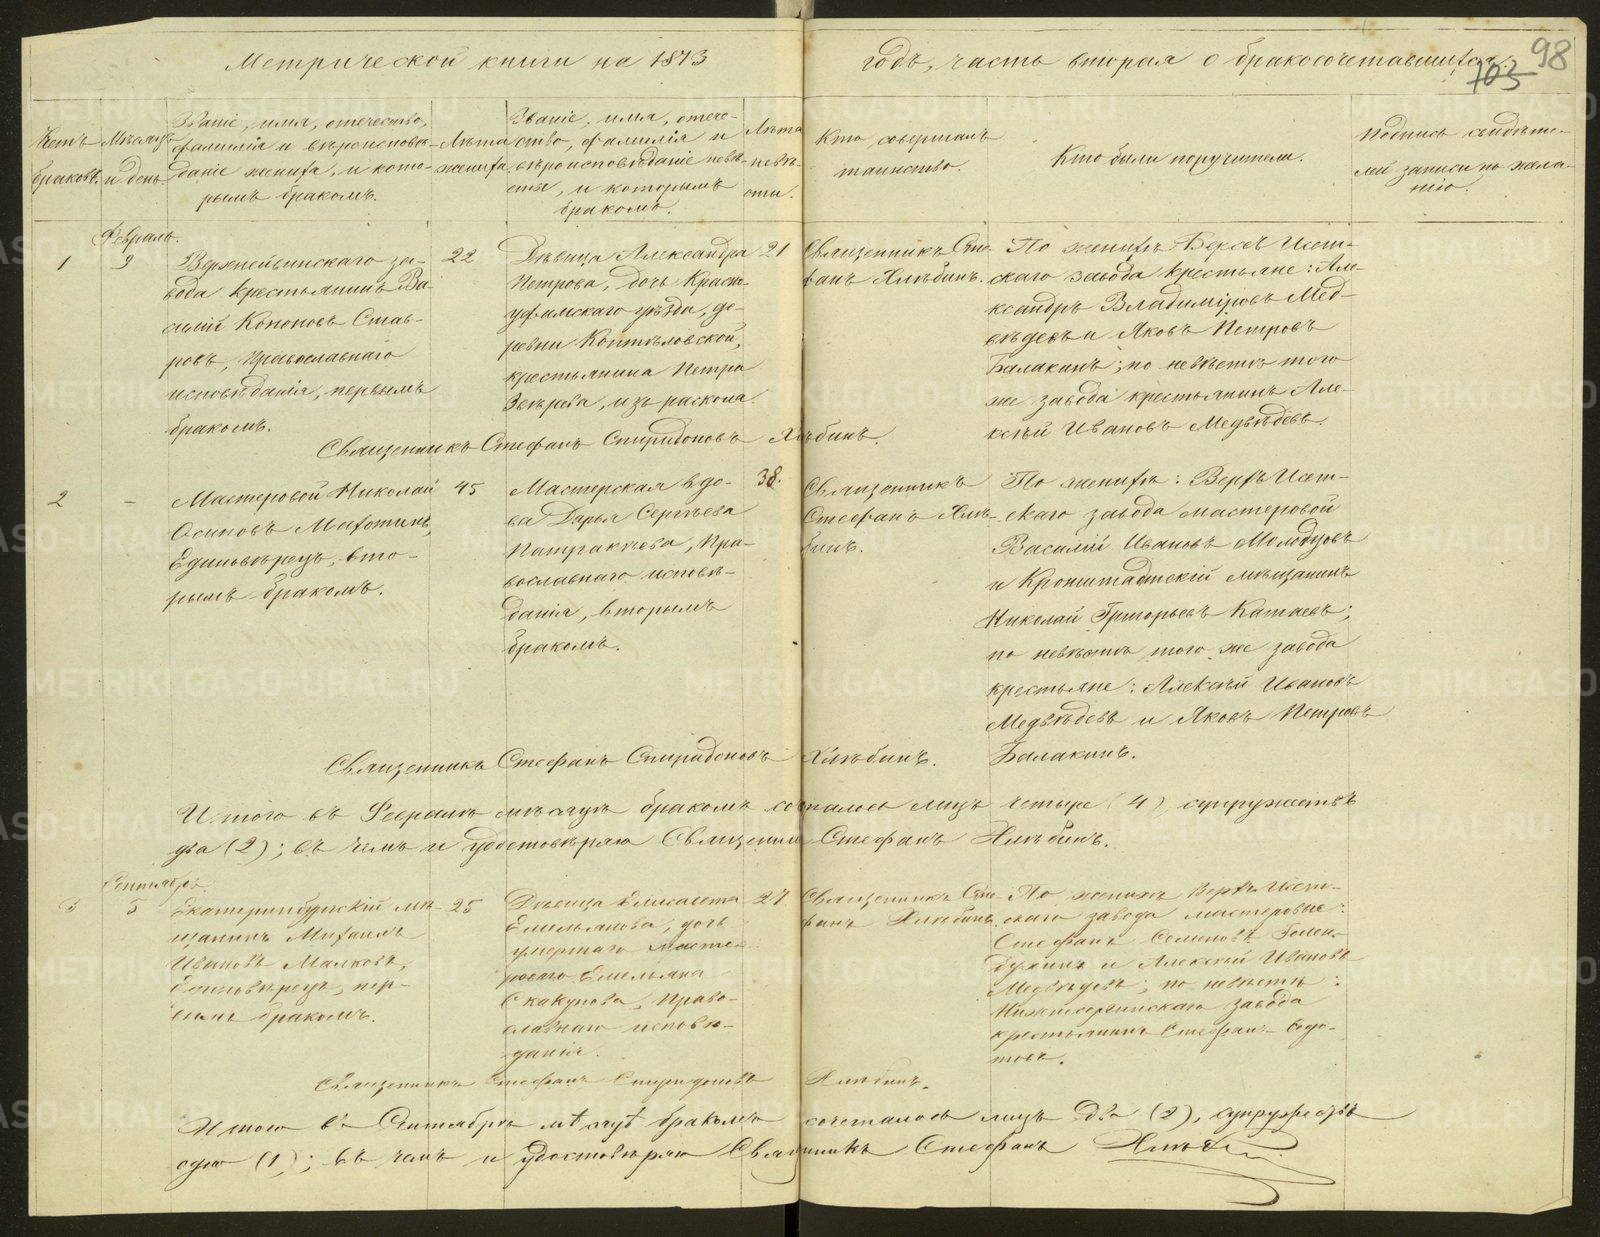 Метрической книги на 1873 годъ, часть вторая о бракосочетавшихся.
98
103
Счетъ браковъ.
Мѣсяцъ и день
Званіе, имя, отчество,
фамилія и вѣроисповѣ-
даніе жениха, и кото-
рымъ бракомъ.
Лѣта
жениха.
Званіе, имя, отече-
ство, фамилія и
вѣроисповѣданіе невѣ-
сты, и которымъ
бракомъ.
Лѣта
невѣ-
сты.
Кто совершалъ
таинство.
Кто были поручители.
Подпись свидѣте-
лей записи по жела-
нію.
Февраль.
1
9
Верхнейвинскаго за-
вода крестьянинъ Ва-
силій Кононовъ Став-
ровъ, православнаго
исповѣданія, первымъ
бракомъ.
22
Дѣвица Александра
Петрова, дочь Красно-
уфимскаго уѣзда, де-
ревни
крестьянина Петра
Звѣрева, изъ раскола.
21
Священникъ Сте-
фанъ Хлѣбинъ.
По женихѣ Верхъ Исет-
скаго завода крестьяне: Але-
ксандръ Владиміровъ Мед-
вѣдевъ и Яковъ Петровъ
Балакинъ; по невѣстѣ того
же завода крестьянинъ Але-
ксѣй Ивановъ Медвѣдевъ.
Священникъ Стефанъ Спиридоновъ Хлѣбинъ.
2
–
Мастеровой Николай
Осиповъ Махотинъ,
Единовѣрецъ, вто-
рымъ бракомъ.
45
Мастерская вдо-
ва Дарья Сергѣева
Патракѣева, Пра-
вославнаго исповѣ-
данія, вторымъ
бракомъ.
38.
Священникъ
Стефанъ Хлѣ-
бинъ.
По женихѣ: Верхъ Исет-
скаго завода мастеровой
Василій Ивановъ Молодцовъ
и Кронштадтскій мѣщанинъ
Николай Григорьевъ Катаевъ;
по невѣстѣ того же завода
крестьяне: Алексѣй Ивановъ
Медвѣдевъ и Яковъ Петровъ
Балакинъ.
Священникъ Стефанъ Спиридоновъ Хлѣбинъ.
Итого въ Февралѣ мѣсяцѣ бракомъ сочеталось лицъ четыре (4), супружествъ
два (2); въ чемъ и удостовѣряю Священникъ Стефанъ Хлѣбинъ.
Сентябрь.
3
5
Екатеринбургскій мѣ-
щанинъ Михаилъ
Ивановъ Малковъ,
Единовѣрецъ, пер-
вымъ бракомъ.
25
Дѣвица Елисавета
Емельянова, дочь
умершаго масте-
роваго Емельяна
Скакунова, Право-
славнаго исповѣ-
данія.
27
Священникъ Сте-
фанъ Хлѣбинъ.
По женихѣ Верхъ Исет-
скаго завода мастеровые:
Стефанъ Семеновъ Голен-
духинъ и Алексѣй Ивановъ
Медвѣдевъ; по невѣстѣ:
Нижнесергинскаго завода
крестьянинъ Стефанъ Ѳедо-
товъ.
Священникъ Стефанъ Спиридоновъ Хлѣбинъ.
Итого въ Сентябрѣ мѣсяцѣ бракомъ сочеталось лицъ два (2), супружествъ
одно (1); въ чемъ и удостовѣряю Священникъ Стефанъ Хлѣбинъ
METRIKI.GASO-URAL.RU